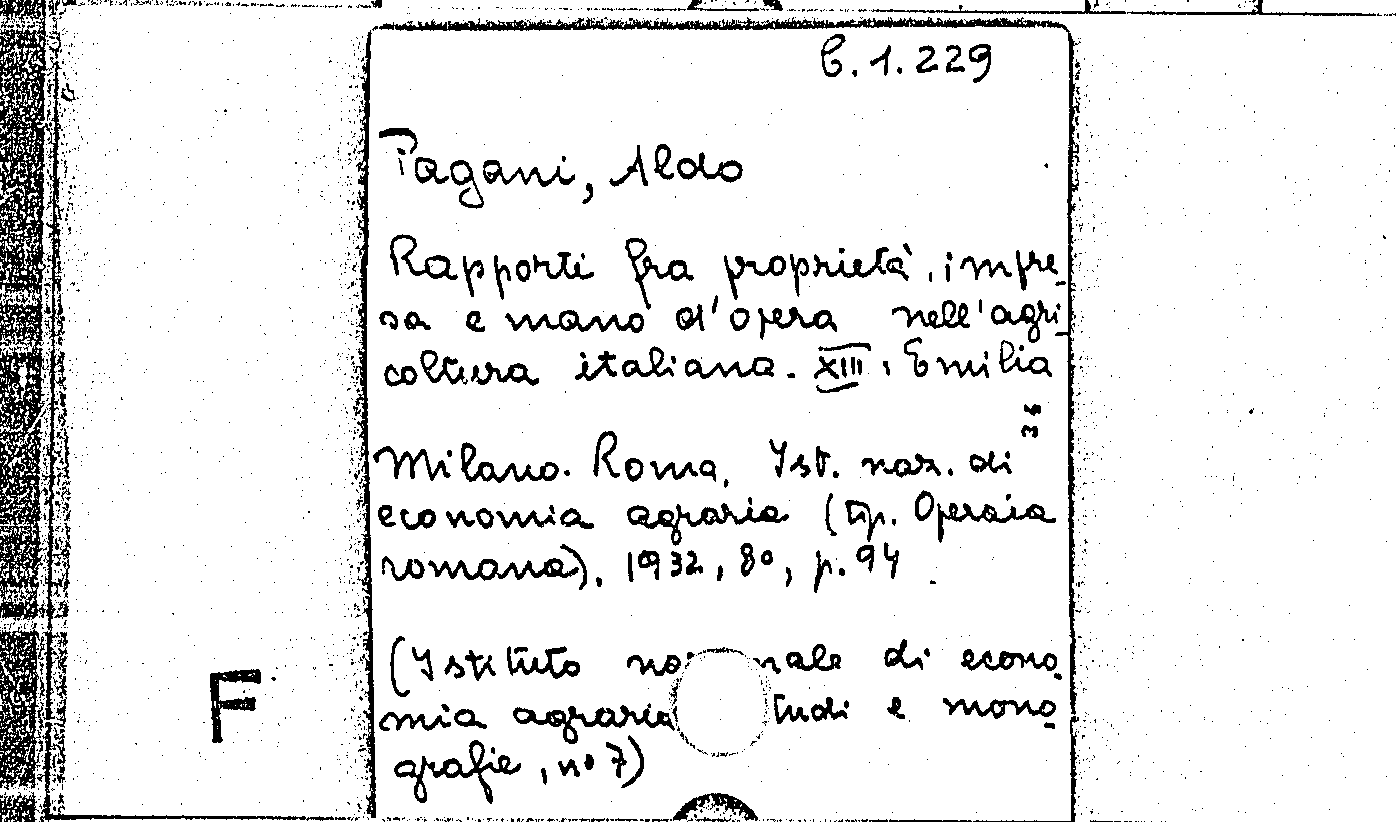 C.1.229
Pagani, Aldo
Rapporti fra proprietà, impre-
sa e mano d'opera nell'agri-
coltura italiana. XIII. Emilia
Milano. Roma, Ist. naz. di
economia agraria (tip. Operaia
romana), 1932, 8º, p. 94
(Istituto nazionale di econo-
mia agraria tudi e mono-
grafie, nº 7)
F